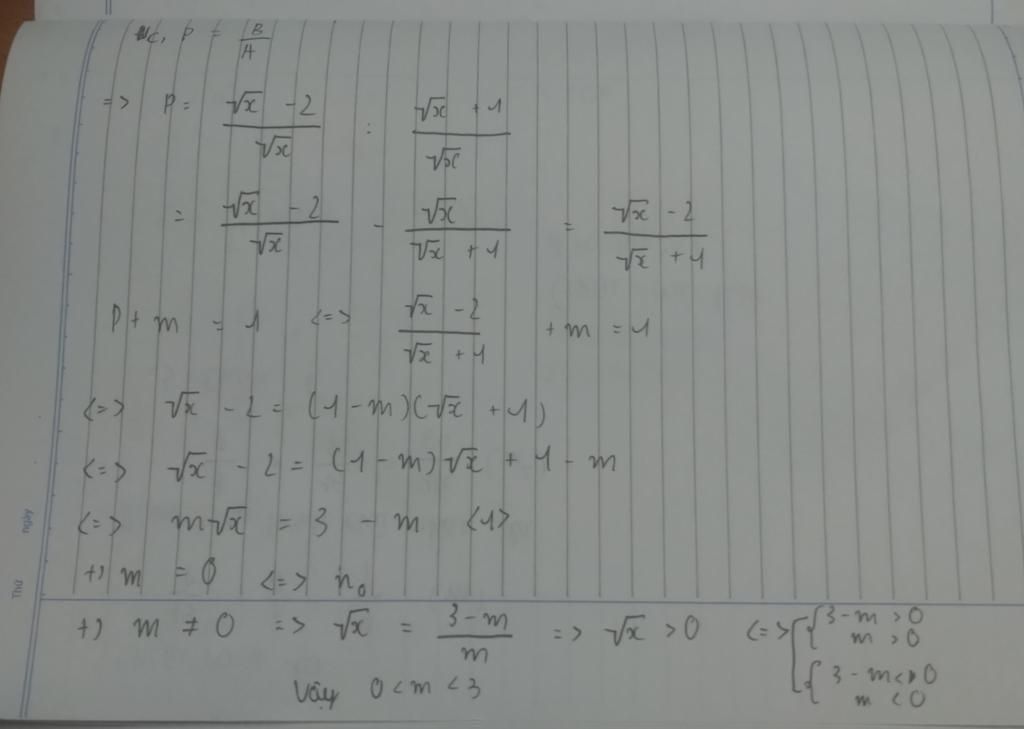 c, P = B/A
=> P = (√x - 2)/√x : (√x + 1)/√x
= (√x - 2)/√x - √x/(√x + 1) = (√x - 2)/(√x + 1)
P + m = 1 <=> (√x - 2)/(√x + 1) + m = 1
<=> √x - 2 = (1 - m)(√x + 1)
<=> √x - 2 = (1 - m)√x + 1 - m
<=> m√x = 3 - m <1>
+) m = 0 <=> n₀
+) m ≠ 0 => √x = (3 - m)/m => √x > 0 <=> [ { 3 - m > 0
m > 0
{ 3 - m < 0
m < 0
Vậy 0 < m < 3
ngày
Thứ